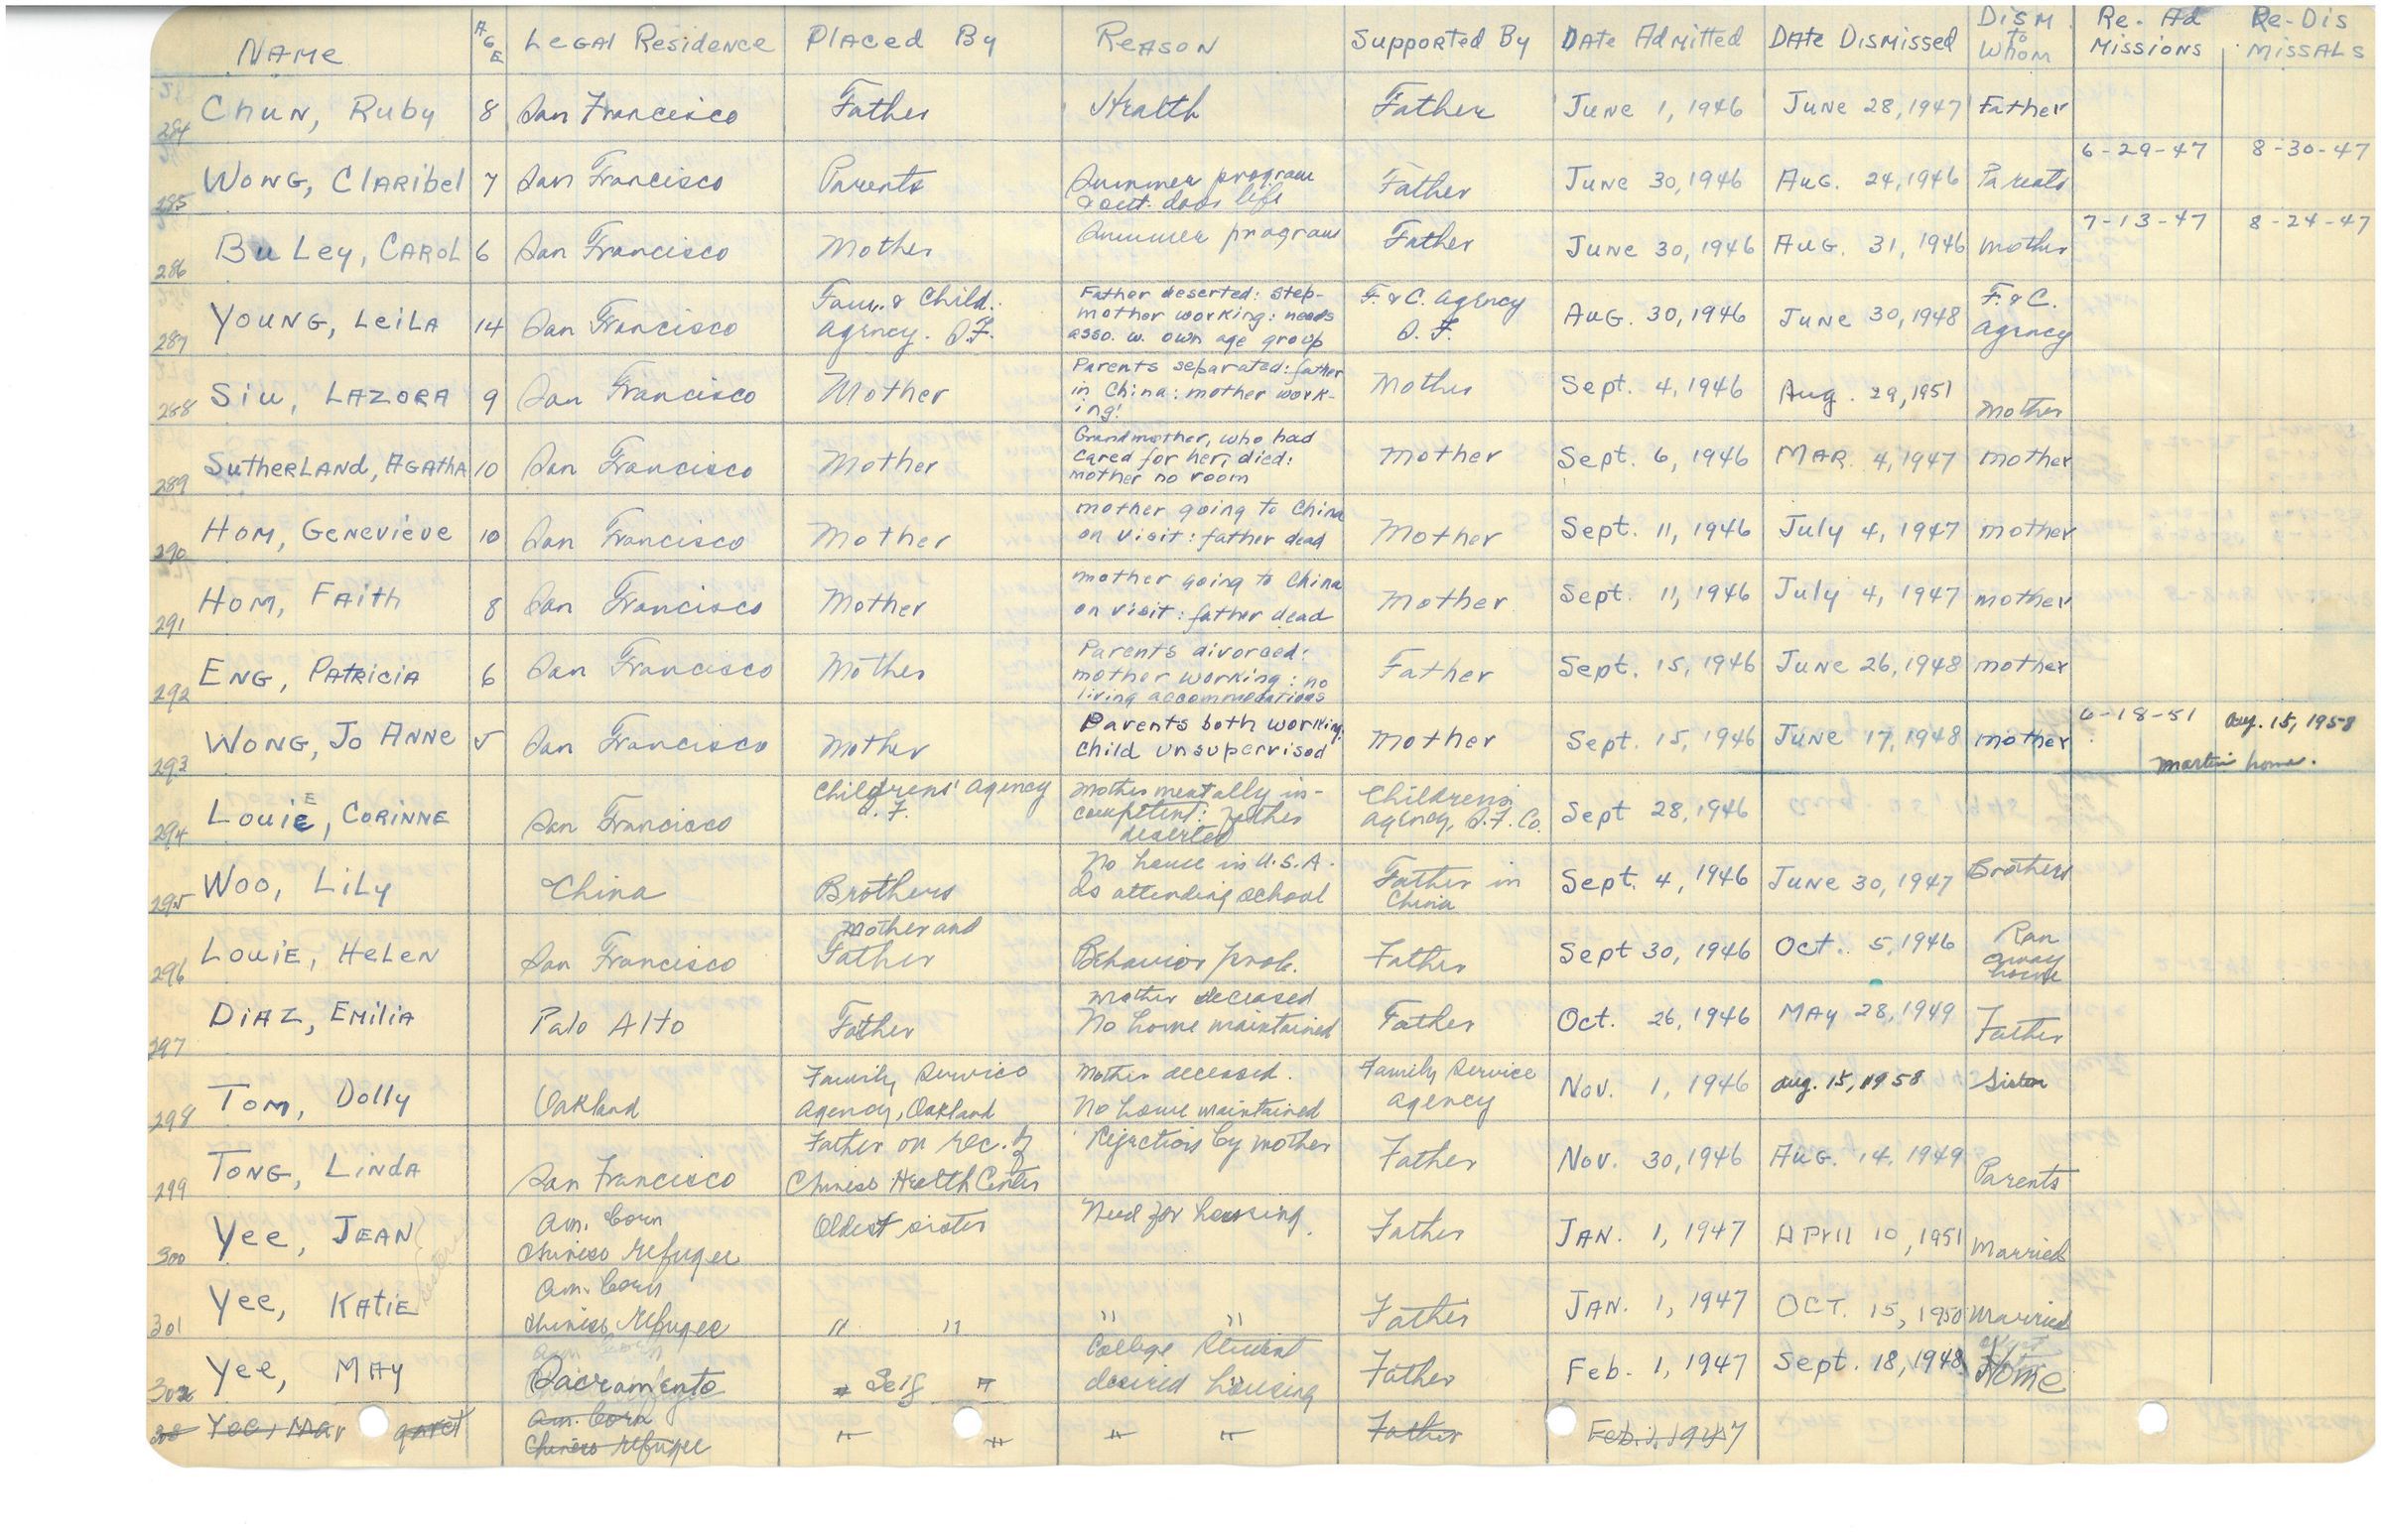 NAME AGE LEGAL RESIDENCE PLACED BY REASON SUPPORTED BY DATE ADMITTED DATE DISMISSED DISM to Whom Re-Ad MISSIONS Re-Dis MISSALS
284 Chun, Ruby 8 San Francisco Father Health Father June 1, 1946 June 28, 1947 Father
285 Wong, Claribel 7 San Francisco Parents Summer program & out-door life Father June 30, 1946 Aug. 24, 1946 Parents 6-29-47 8-30-47
286 Bu Ley, Carol 6 San Francisco Mother Summer program Father June 30, 1946 Aug. 31, 1946 mother 7-13-47 8-24-47
287 Young, Leila 14 San Francisco Fam. & Child. Agency. S.F. Father deserted: step-mother working: needs asso. w. own age group F. & C. Agency S. F. Aug. 30, 1946 June 30, 1948 F. & C. Agency
288 Siu, Lazora 9 San Francisco Mother Parents separated: father in China: mother work-ing! Mother Sept. 4, 1946 Aug. 29, 1951 Mother
289 Sutherland, Agatha 10 San Francisco Mother Grandmother, who had cared for her, died: mother no room mother Sept. 6, 1946 Mar. 4, 1947 mother
290 Hom, Genevieve 10 San Francisco Mother mother going to China on visit: father dead Mother Sept. 11, 1946 July 4, 1947 mother
291 Hom, Faith 8 San Francisco Mother mother going to China on visit: father dead Mother Sept. 11, 1946 July 4, 1947 mother
292 Eng, Patricia 6 San Francisco Mother Parents divorced: mother working: no living accommodations Father Sept. 15, 1946 June 26, 1948 mother
293 Wong, Jo Anne 5 San Francisco Mother Parents both working. Child unsupervised Mother Sept. 15, 1946 June 17, 1948 mother 6-18-51 Aug. 15, 1958 Martin home.
294 Louie, Corinne San Francisco Childrens' Agency S. F. Mother mentally in-competent: father deserted Childrens' Agency, S.F. Co. Sept 28, 1946
295 Woo, Lily China Brothers No home in U.S.A. Is attending school Father in China Sept. 4, 1946 June 30, 1947 Brothers
296 Louie, Helen San Francisco Mother and Father Behavior prob. Father Sept 30, 1946 Oct. 5, 1946 Ran away home
297 Diaz, Emilia Palo Alto Father Mother deceased No home maintained Father Oct. 26, 1946 May 28, 1949 Father
298 Tom, Dolly Oakland Family Service Agency, Oakland Mother deceased. No home maintained Family Service Agency Nov. 1, 1946 Aug. 15, 1958 Sister
299 Tong, Linda San Francisco Father on rec. of Chinese Health Center Rejection by mother Father Nov. 30, 1946 Aug. 14, 1949 Parents
300 Yee, Jean Am. born Chinese refugee Oldest sister Need for housing. Father Jan. 1, 1947 April 10, 1951 Married
301 Yee, Katie Am. born Chinese refugee " " " " Father Jan. 1, 1947 Oct. 15, 1950 Married
302 Yee, May Sacramento Self College student desired housing Father Feb. 1, 1947 Sept. 18, 1948 Home
Yee, May Am. born Chinese refugee " " " " Father Feb. 1, 1947